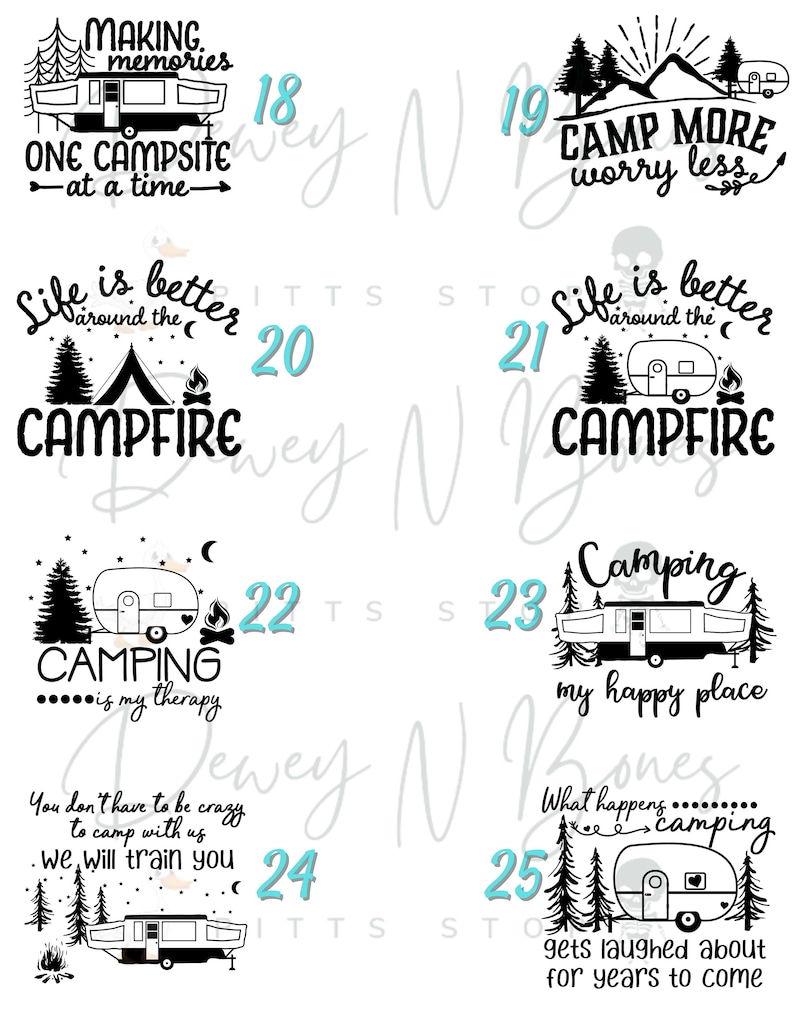 MAKING
memories
ONE CAMPSITE
at a time
18
19
CAMP MORE
worry less
Life is better
around the
CAMPFIRE
20
21
Life is better
around the
CAMPFIRE
CAMPING
is my therapy
22
23
Camping
my happy place
You don't have to be crazy
to camp with us
we will train you
24
25
What happens
camping
gets laughed about
for years to come
Dewey N Bones
PITTS STO
Dewey N Bones
TTS STO
Dewey N Bones
PITTS STO